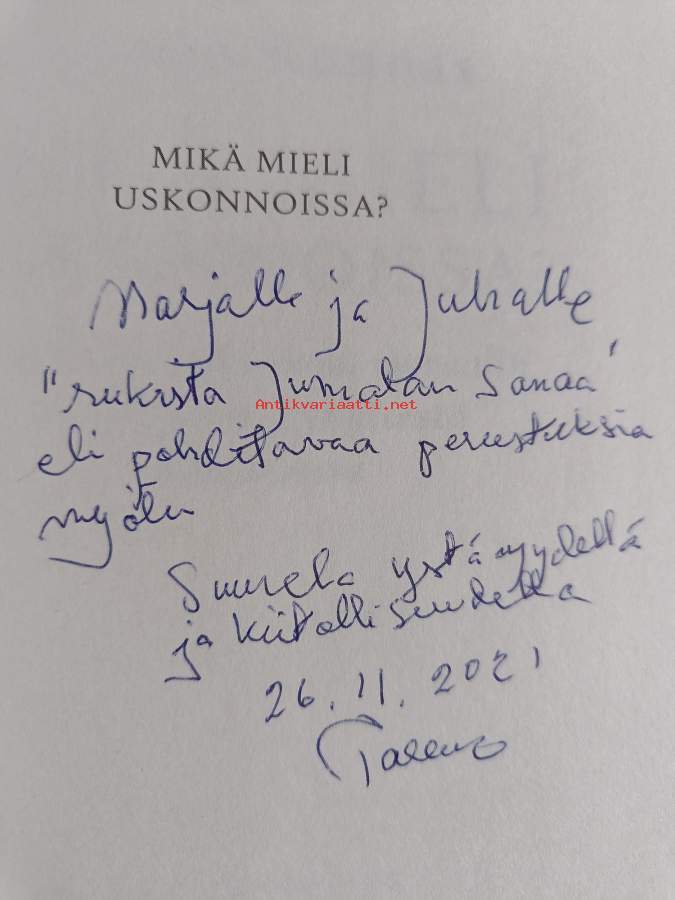 MIKÄ MIELI
USKONNOISSA?
Marjalle ja Juhalle
"rukista Jumalan Sanaa"
Antikvariaatti.net
eli pohdittavaa perustuksia
myöten
Suurella ystävyydellä
ja kiitollisuudella
26.11.2021